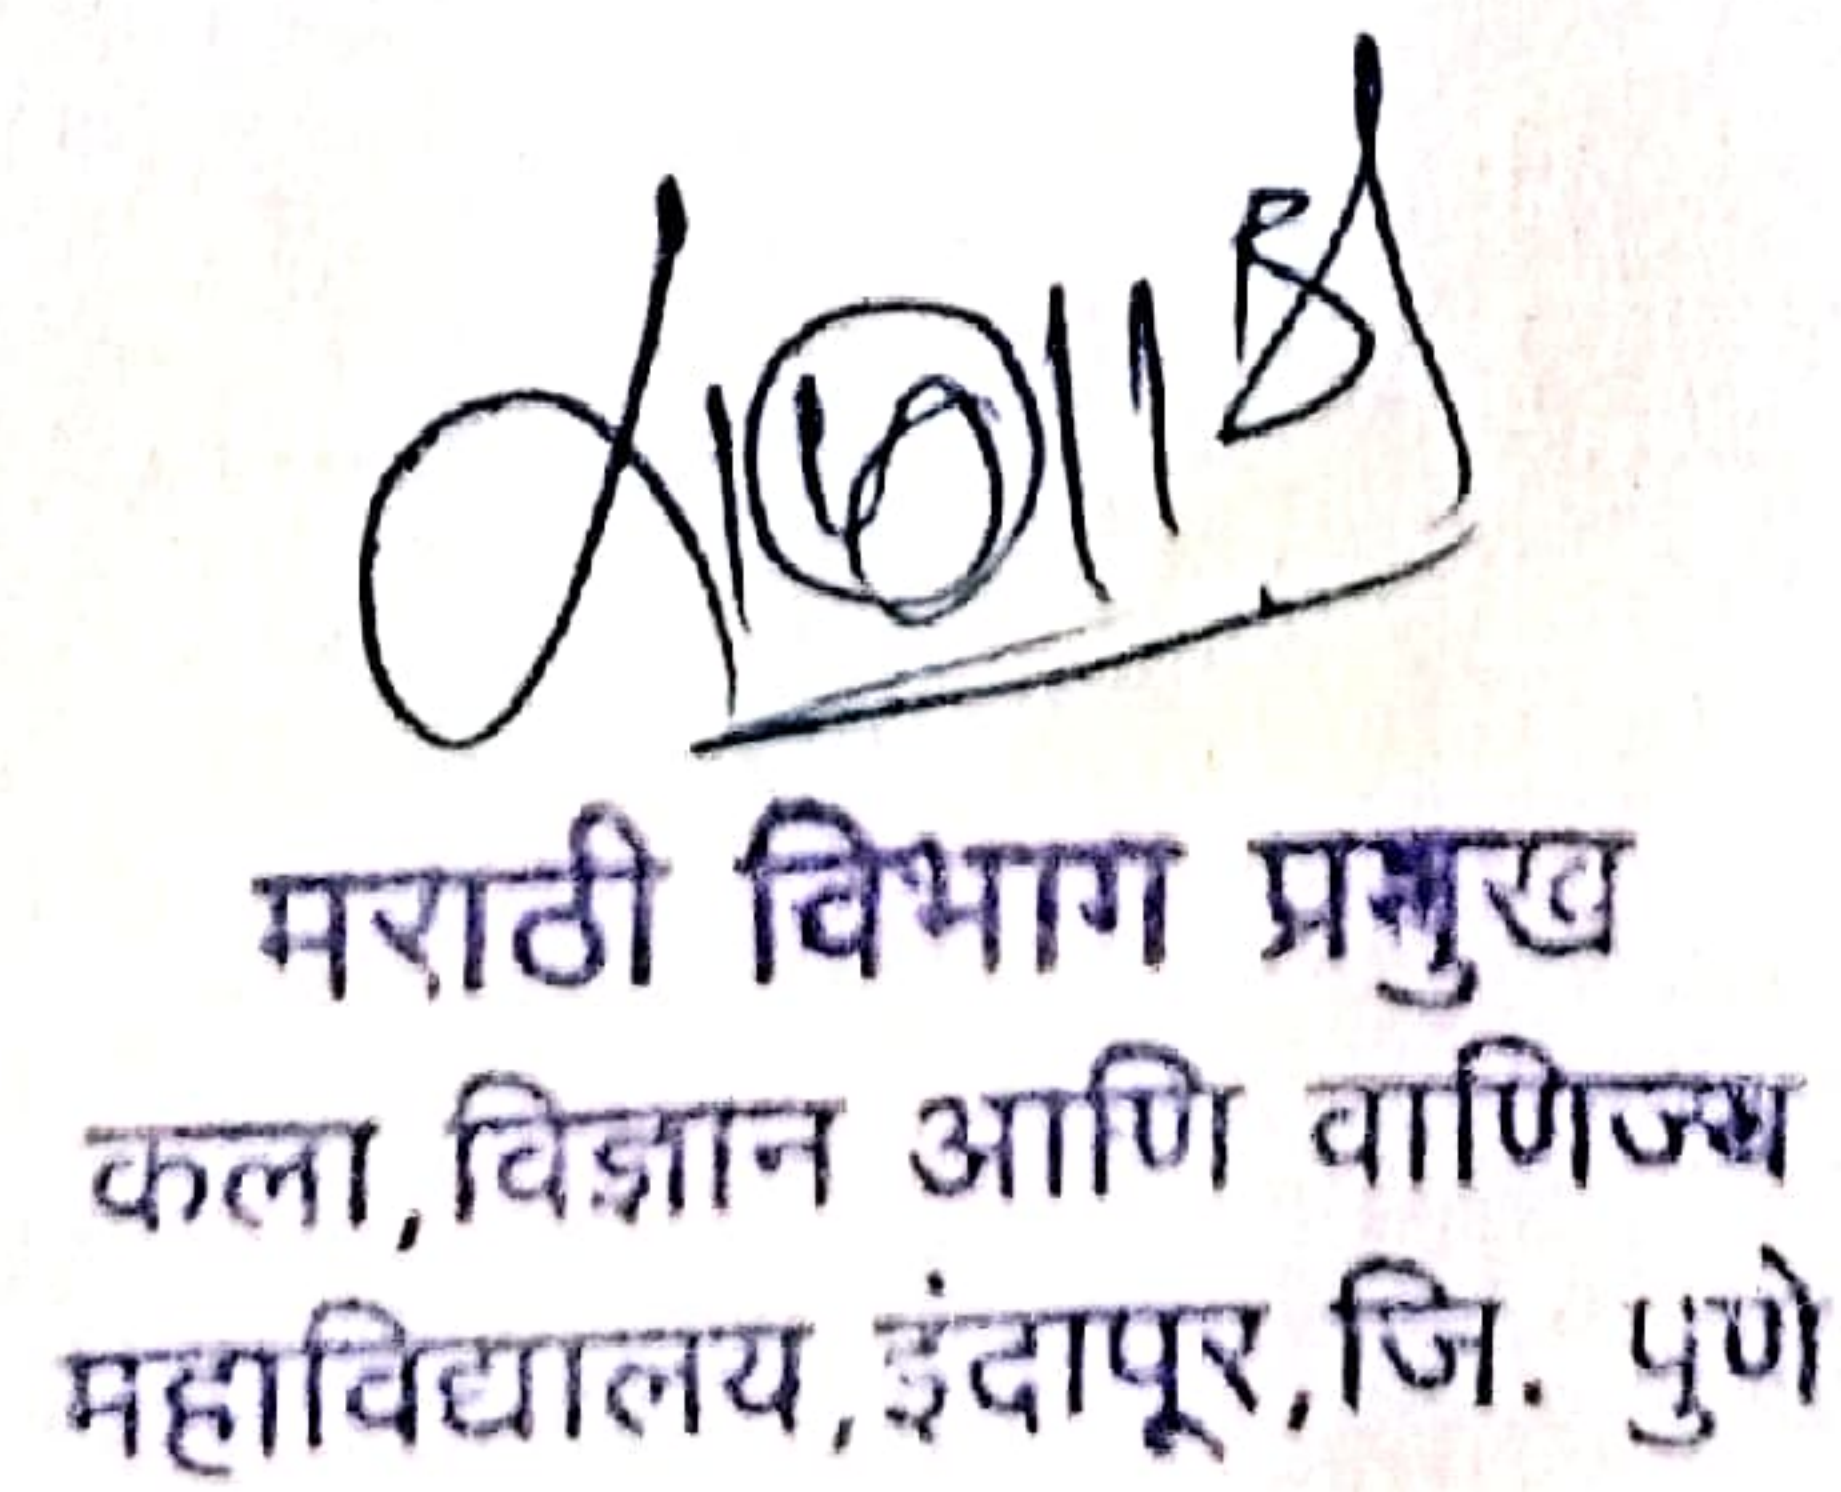 मराठी विभाग प्रमुख
कला, विज्ञान आणि वाणिज्य
महाविद्यालय, इंदापूर, जि. पुणे